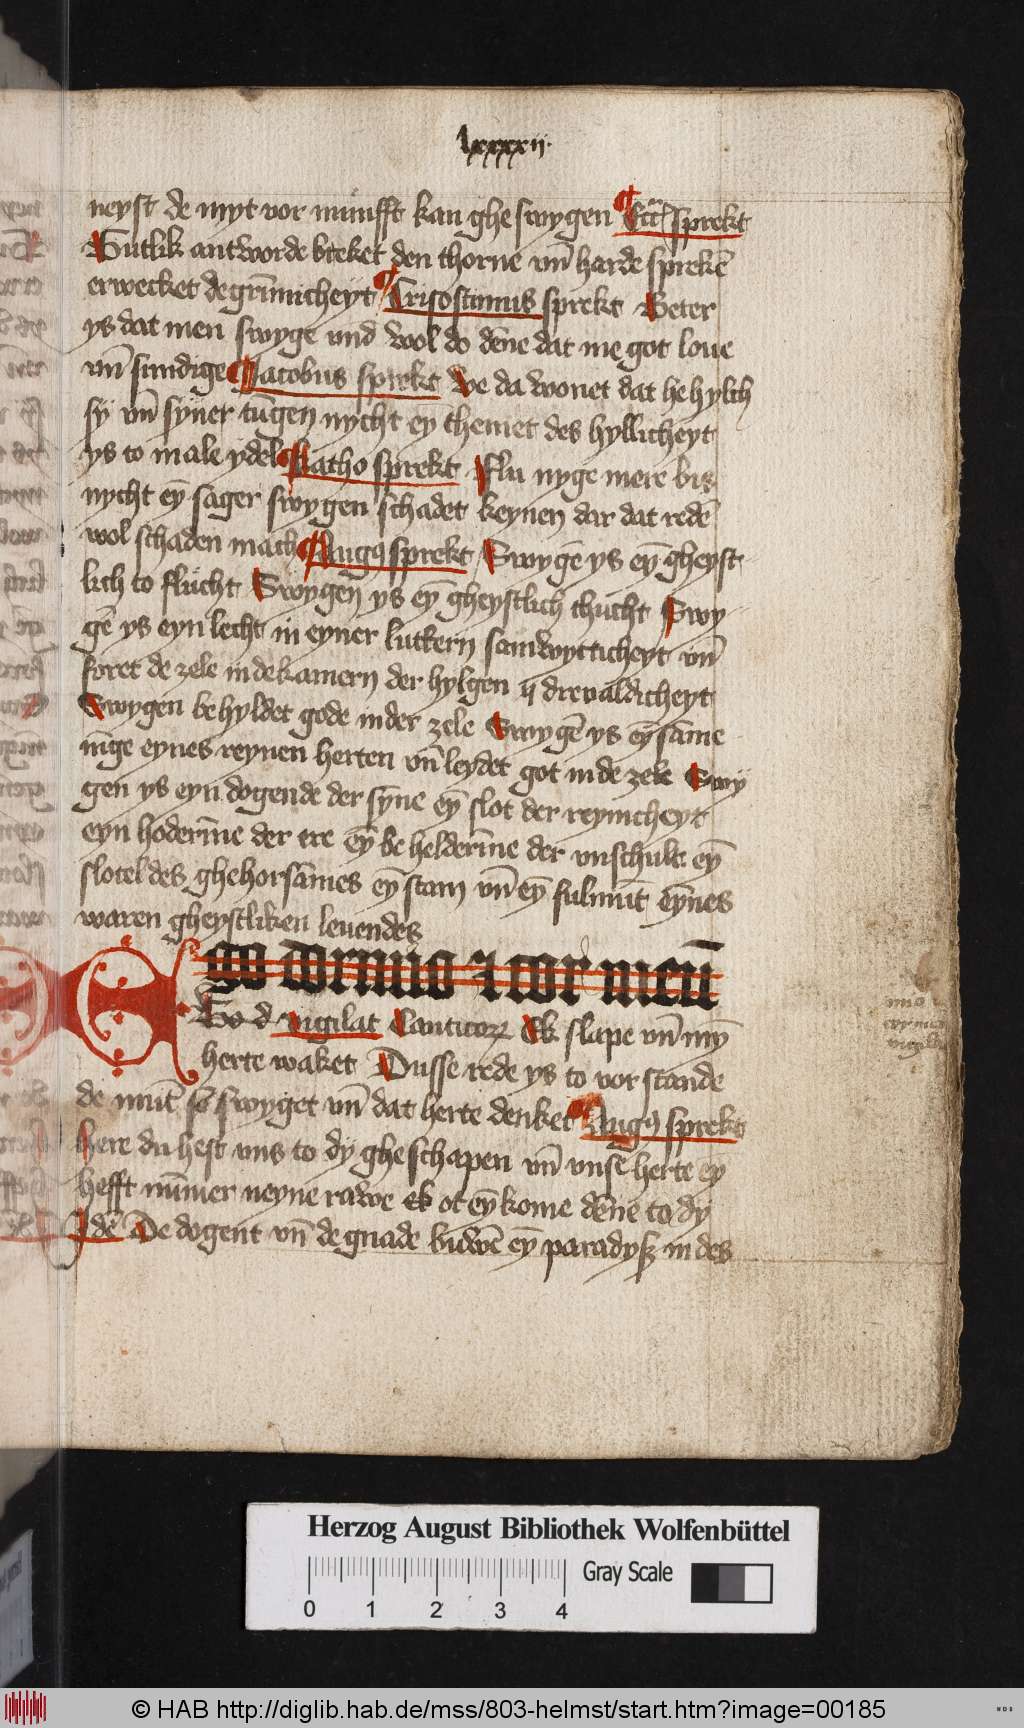 lxxxxii
neyst de myt vor nunfft kan ghe swygen Ecc͞i sprekt
Gutlik antworde breket den thorne vn̄ harde sprekē
erwecket de grim̄icheyt Crisostimus sprekt Beter
ys dat men swyge vnd wol do dēne dat me got loue
vn̄ sundige Jacobus sprekt We da wonet dat he hylch
sy vn̄ syner tūgen nycht eȳ themet des hyllicheyt
ys to male ydel Katho sprekt Flu nyge mere bis
nycht eȳ sager swygen schadet keynen dar dat redē
wol schaden mach Augꝰ sprekt Swygē ys eȳ gheyst
lich to flucht Swygen ys eȳ gheystlich thucht Swy
gē ys eyn lecht in eyner luttern samwytticheyt vn̄
foret de zele in de kamern der hylgen drevaldicheyt
Swygen be hyldet gode in der zele Swygē ys eȳ sāme
nīge eynes reynen herten vn̄ leydet got in de zele Swy
gen ys eyn dogende der sȳne eȳ slot der reynicheyt
eyn hoderīne der ere eȳ be helderīne der vnschult eȳ
slotel des ghehorsāmes eȳ stam vn̄ eȳ fulmūt eȳnes
waren gheystliken leuendes
Ego dormio ⁊ cor meū
vigilat Canticoꝝ Ek slape vn̄ mȳ
herte waket Dusse rede ys to vor stande
de mūt so swyget vn̄ dat herte denket Augꝰ sprekt
Here du hest vns to dy ghe schapen vn̄ vnse herte eȳ
hefft nūmer neyne rawe ek ot eȳ kome dēne to dy
Idē De dogent vn̄ de gnade buwē eȳ paradyß in des
Herzog August Bibliothek Wolfenbüttel
Gray Scale
0 1 2 3 4
© HAB http://diglib.hab.de/mss/803-helmst/start.htm?image=00185